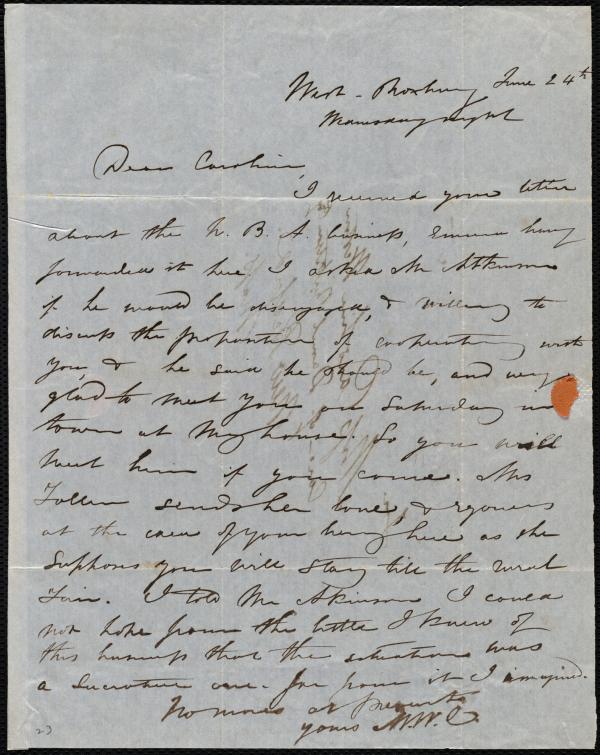 West-Roxbury June 24th
Wednesday night
Dear Caroline,
I received your letter
about the N. B. A. business, Emma having
forwarded it here I asked Mr Atkinson
if he would be disengaged, & willing to
discuss the proposition of cooperating with
you, & he said he should be, and very
glad to meet you on Saturday in
town at my house. So you will
meet him if you come. Mrs
Follen sends her love, & rejoices
at the idea of your being here as she
supposes you will stay till the rural
Fair. I told Mr Atkinson I could
not hope from the little I knew of
this business that the situation was
a lucrative one - far from it I imagined.
No more at present
yours M.W.C.
23